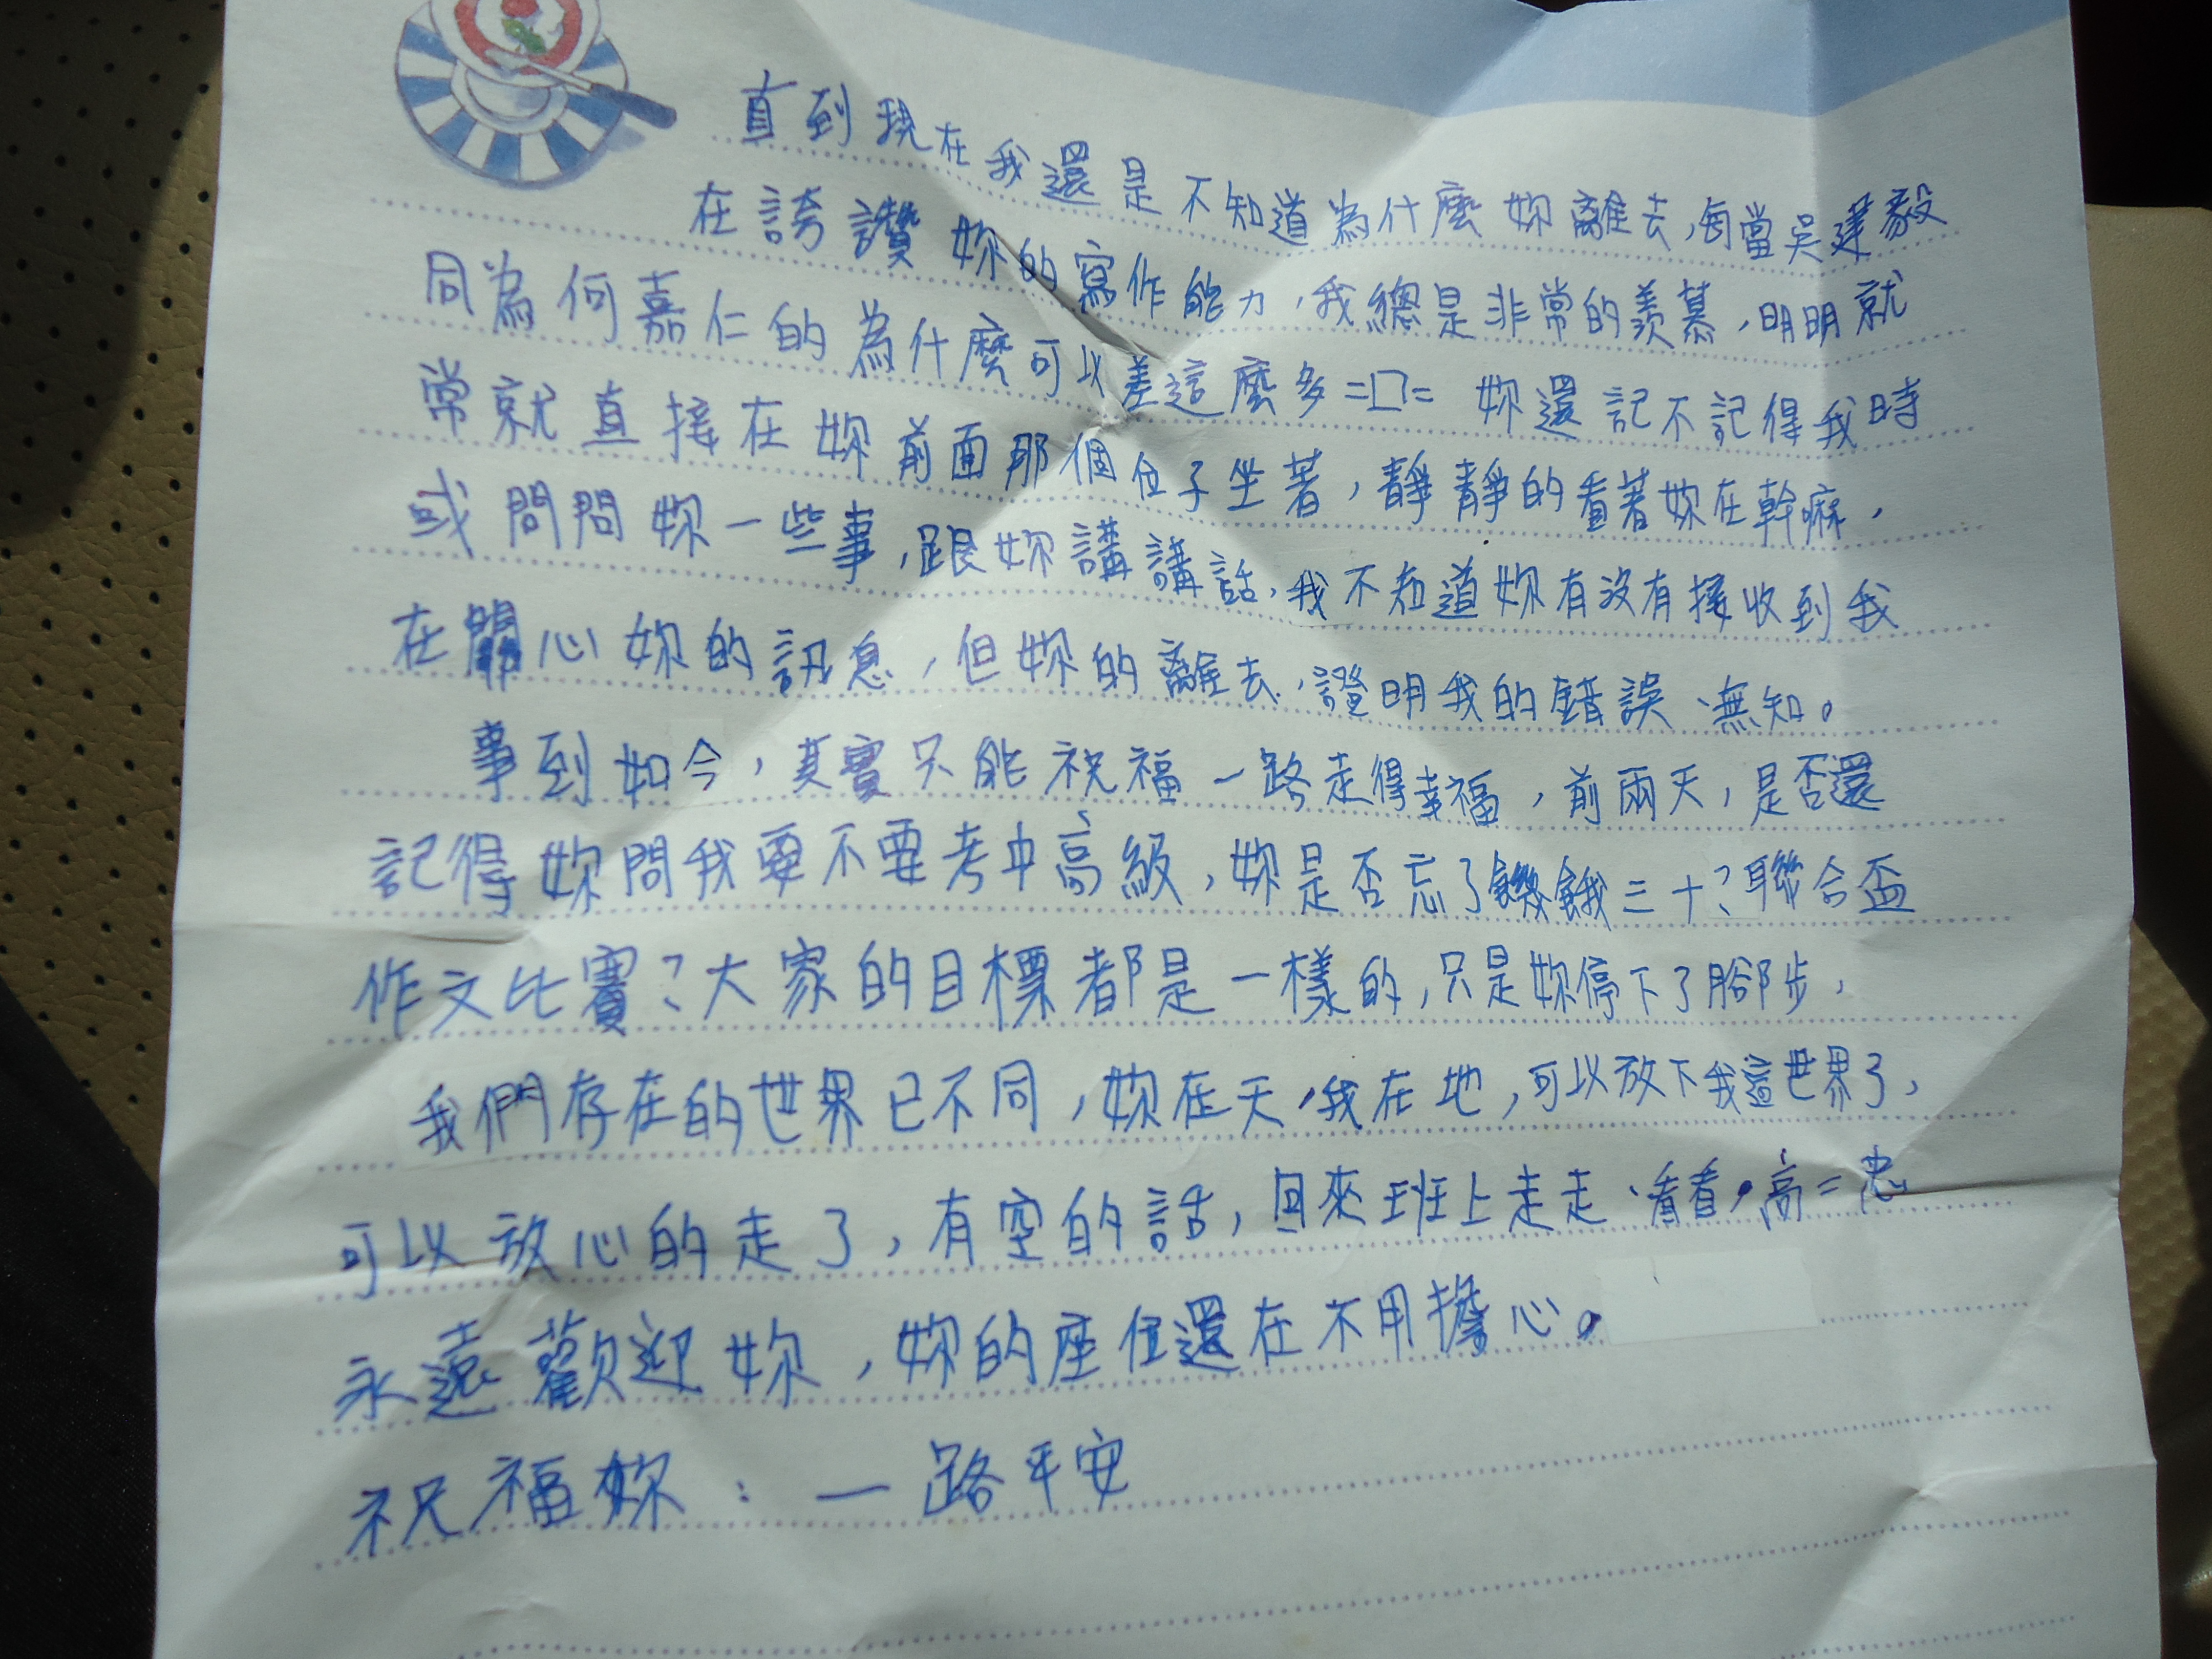 直到現在我還是不知道為什麼妳離去,每當吳建毅
在誇讚妳的寫作能力,我總是非常的羨慕,明明就
同為何嘉仁的為什麼可以差這麼多=口= 妳還記不記得我時
常就直接在妳前面那個位子坐著,靜靜的看著妳在幹嘛,
或問問妳一些事,跟妳講講話,我不知道妳有沒有接收到我
在關心妳的訊息,但妳的離去,證明我的錯誤、無知。
事到如今,其實只能祝福一路走得幸福,前兩天,是否還
記得妳問我要不要考中高級,妳是否忘了饑餓三十?聯合盃
作文比賽?大家的目標都是一樣的,只是妳停下了腳步,
我們存在的世界已不同,妳在天,我在地,可以放下我這世界了,
可以放心的走了,有空的話,回來班上走走、看看,高二忠
永遠歡迎妳,妳的座位還在不用擔心。
祝福妳:一路平安